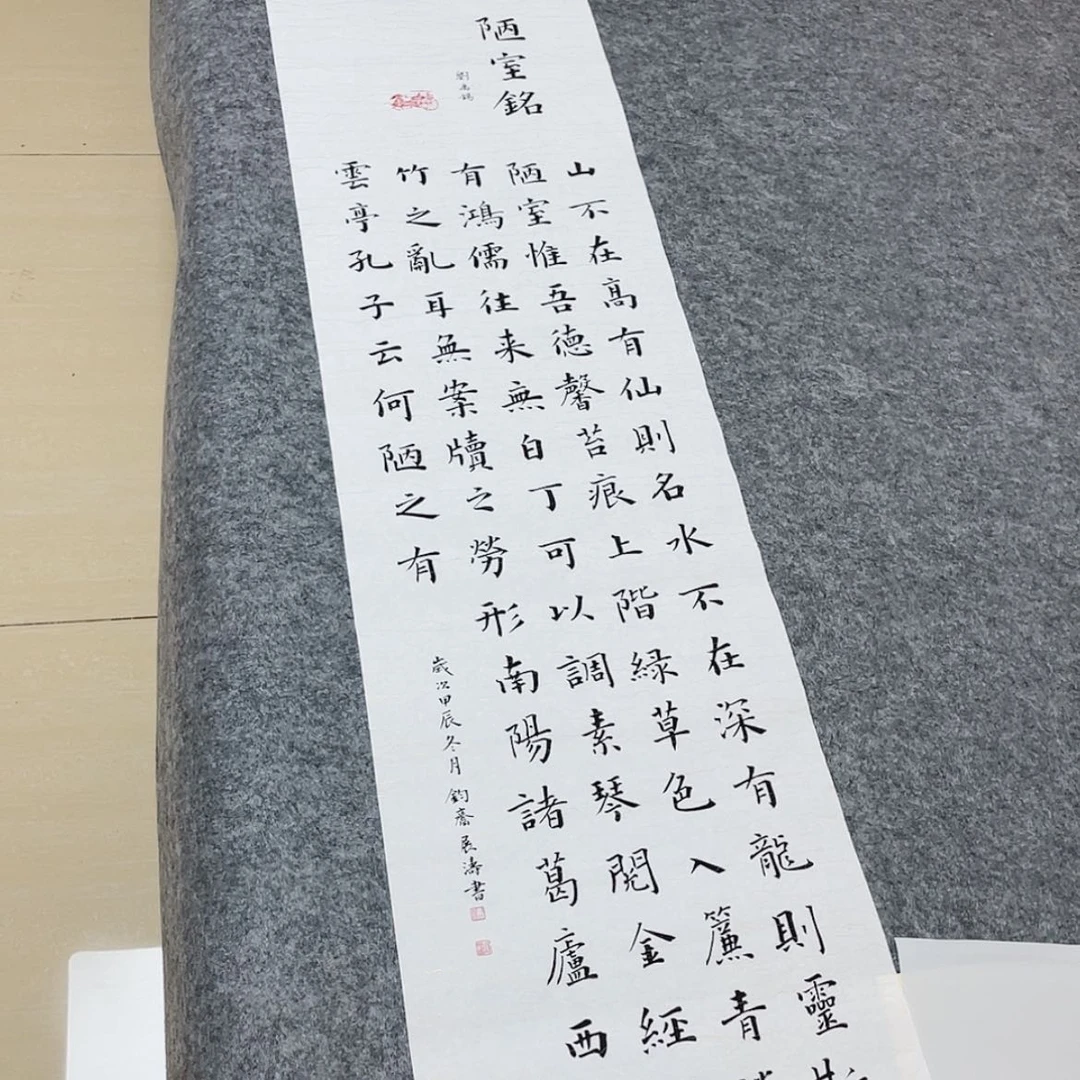 陋室銘
劉禹錫
山不在高有仙則名水不在深有龍則靈
陋室惟吾德馨苔痕上階緑草色入簾青
有鴻儒往来無白丁可以調素琴閱金經
竹之亂耳無案牘之勞形南陽諸葛廬西
雲亭孔子云何陋之有
歲次甲辰冬月鈞齋展濤書